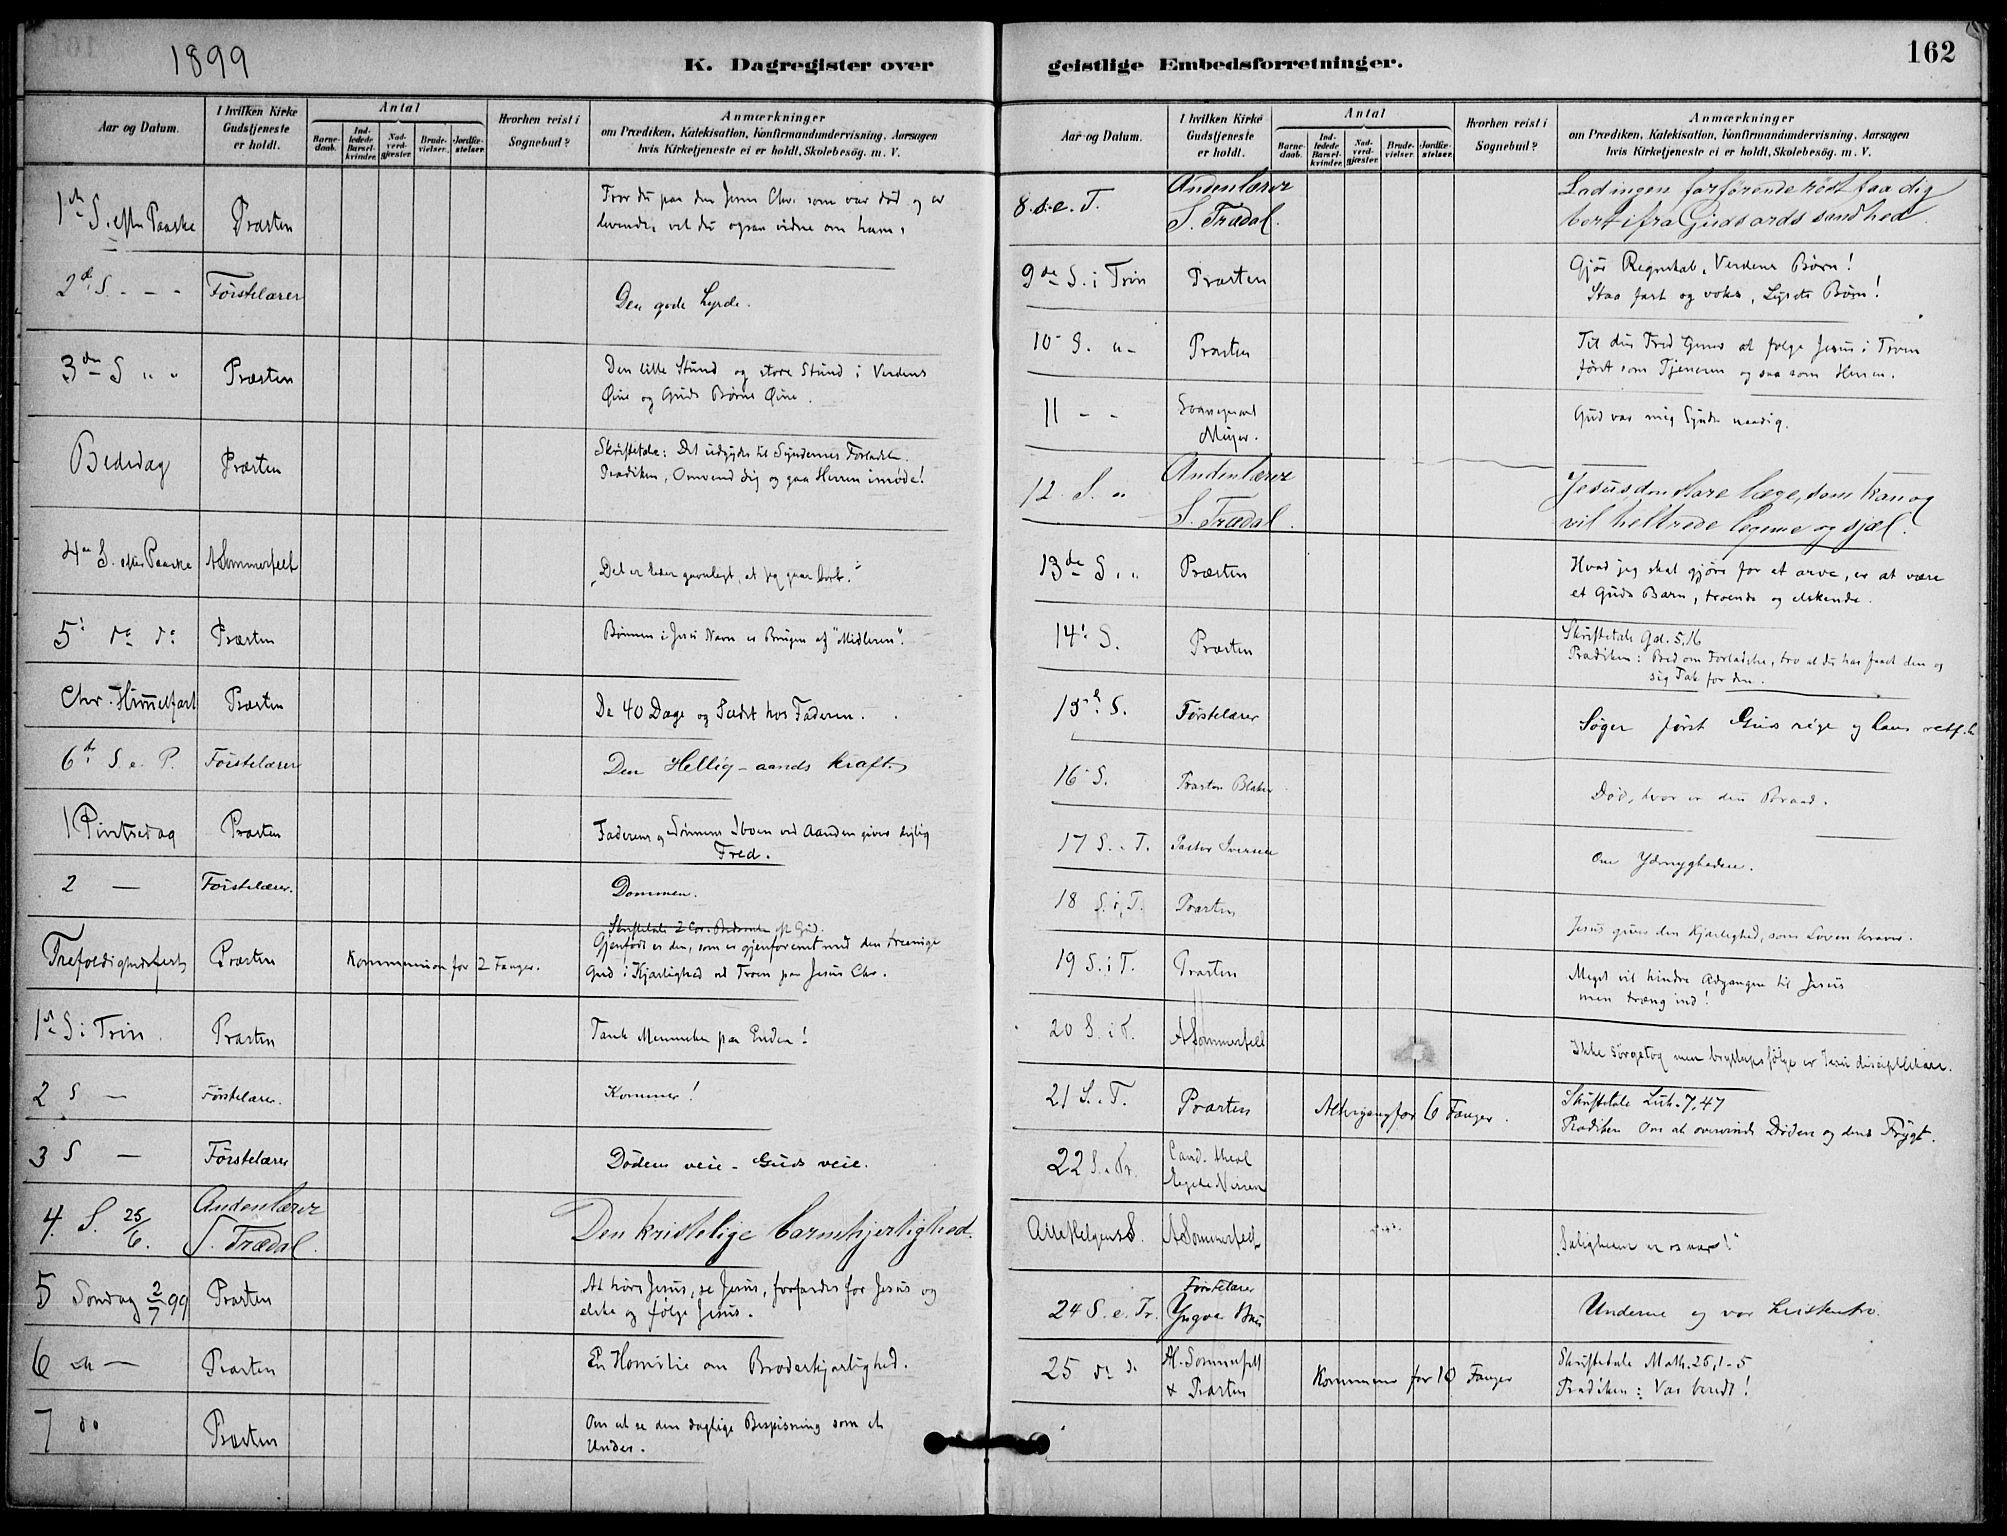 1899
K. Dagregister over
Aar og Datum.
I hvilken Kirke Gudstjeneste er holdt.
Antal
Barne-daab.
Ind-ledede Barsel-kvinder.
Nad-verd-gjester.
Brude-vielser.
Jordfæ-stelser.
Hvorhen reist i Sognebud?
Anmærkninger
om Prædiken, Katekisation, Konfirmandundervisning, Aarsagen
hvis Kirketjeneste ei er holdt, Skolebesøg. m. V.
1ste S. efter Paaske Præsten Tror du paa den Jesus Chr. som var død og er
levende, vil du ogsaa vidne om ham.
2den S. - - - Førstelærer Den gode Hyrde.
3die S " " Præsten Den lille Stund og store Stund i Verdens
Øine og Guds Børns Øine.
Bededag Præsten Skriftetale: Det udgydes til Syndernes Forladelse.
Prædiken, Omvend dig og gaa Herren imøde!
4de S. efter Paaske ASommerfelt „Det er Eder gavnligt, at jeg gaar bort."
5te do do Præsten Bønnen i Jesu Navn er Brugen af "Midleren".
Chr. Himmelfart Præsten De 40 Dage og Sædet hos Faderen.
6te S. e. P. Førstelærer Den Hellig-aands kraft.
1 Pintsedag Præsten Faderens og Sønnens Iboen ved Aanden giver dejlig
Fred.
2 — Førstelærer. Dommen.
Trefoldighedsfest Præsten Kommunion for 2 Fanger. Gjenfødt er den, som er gjenforenet med den treenige
Gud i Kjærlighed ved Troen paa Jesus Chr.
1ste S i Trin. Præsten Tænk Menneske paa Enden!
2 S — Førstelærer. Kommer!
3 S — Førstelærer Dødens veie - Guds veie.
4. S. 25/6. Andenlærer
S. Trædal. Den kristelige barmhjertighed.
5 Søndag 2/7 99 Præsten At høre Jesus, se Jesus, forfærdes for Jesus og
elske og følge Jesus.
6 — Præsten En Homilie om Broderkjærlighed.
7 do Præsten Om at se den daglige Bespisning som et
Under.
geistlige Embedsforretninger.
162
Aar og Datum.
I hvilken Kirke Gudstjeneste er holdt.
Antal
Barne-daab.
Ind-ledede Barsel-kvinder.
Nad-verd-gjester.
Brude-vielser.
Jordfæ-stelser.
Hvorhen reist i Sognebud?
Anmærkninger
om Prædiken, Katekisation, Konfirmandundervisning, Aarsagen
hvis Kirketjeneste ei er holdt, Skolebesøg. m. V.
8. s. e. T. Andenlærer
S. Trædal. Lad ingen forførende røst faa dig
bort ifra Guds ords sandhed.
9de S. i Trin Præsten Gjør Regnskab, Verdens Børn!
Staa fast og voks, Lysets Børn!
10 S. " Præsten Til din Fred tjener at følge Jesus i Troen
først som Tjeneren og saa som Herren.
11 - - Sognepræst
Meyer. Gud vær mig Synder naadig.
12. S. " Andenlærer
S. Trædal. Jesus den store læge, som kan og
vil helbrede legeme og sjæl.
13de S " Præsten Hvad jeg skal gjøre for at arve, er at være
et Guds Barn, troende og elskende.
14. S. Præsten Skriftetale Gal. 5,16
Prædiken: Bed om Forladelse, tro at du har faaet den og
sig Tak for den.
15. S. Førstelærer Søger først Guds rige og hans retf.h
16 S. Præsten Død, hvor er din Braad.
17 S. T. Pastor Iversen Om Ydmygheden.
18 S. i. T. Præsten Jesus giver den Kjærlighed, som Loven kræver.
19 S. i T. Præsten Meget vil hindre Adgangen til Jesus
men træng ind!
20 S. i T. ASommerfelt Ikke sørgetog men bryllupsfølge er Jesu
21 S. T. Præsten Altergang for 6 Fanger. Skriftetale Luk. 7,47
Prædiken Om at overvinde Døden og dens Frygt.
22 S. Tr. Cand. theol
AlleHelgensS. ASommerfelt „Saligheden er os nær!"
24 S. e. Tr. Førstelærer
Yngvar Huus Underne og vor kristentro.
25 do do Al. Sommerfelt
& Præsten Kommunion for 10 Fanger Skriftetale Math. 25,1-5
Prædiken: Vær beredt!